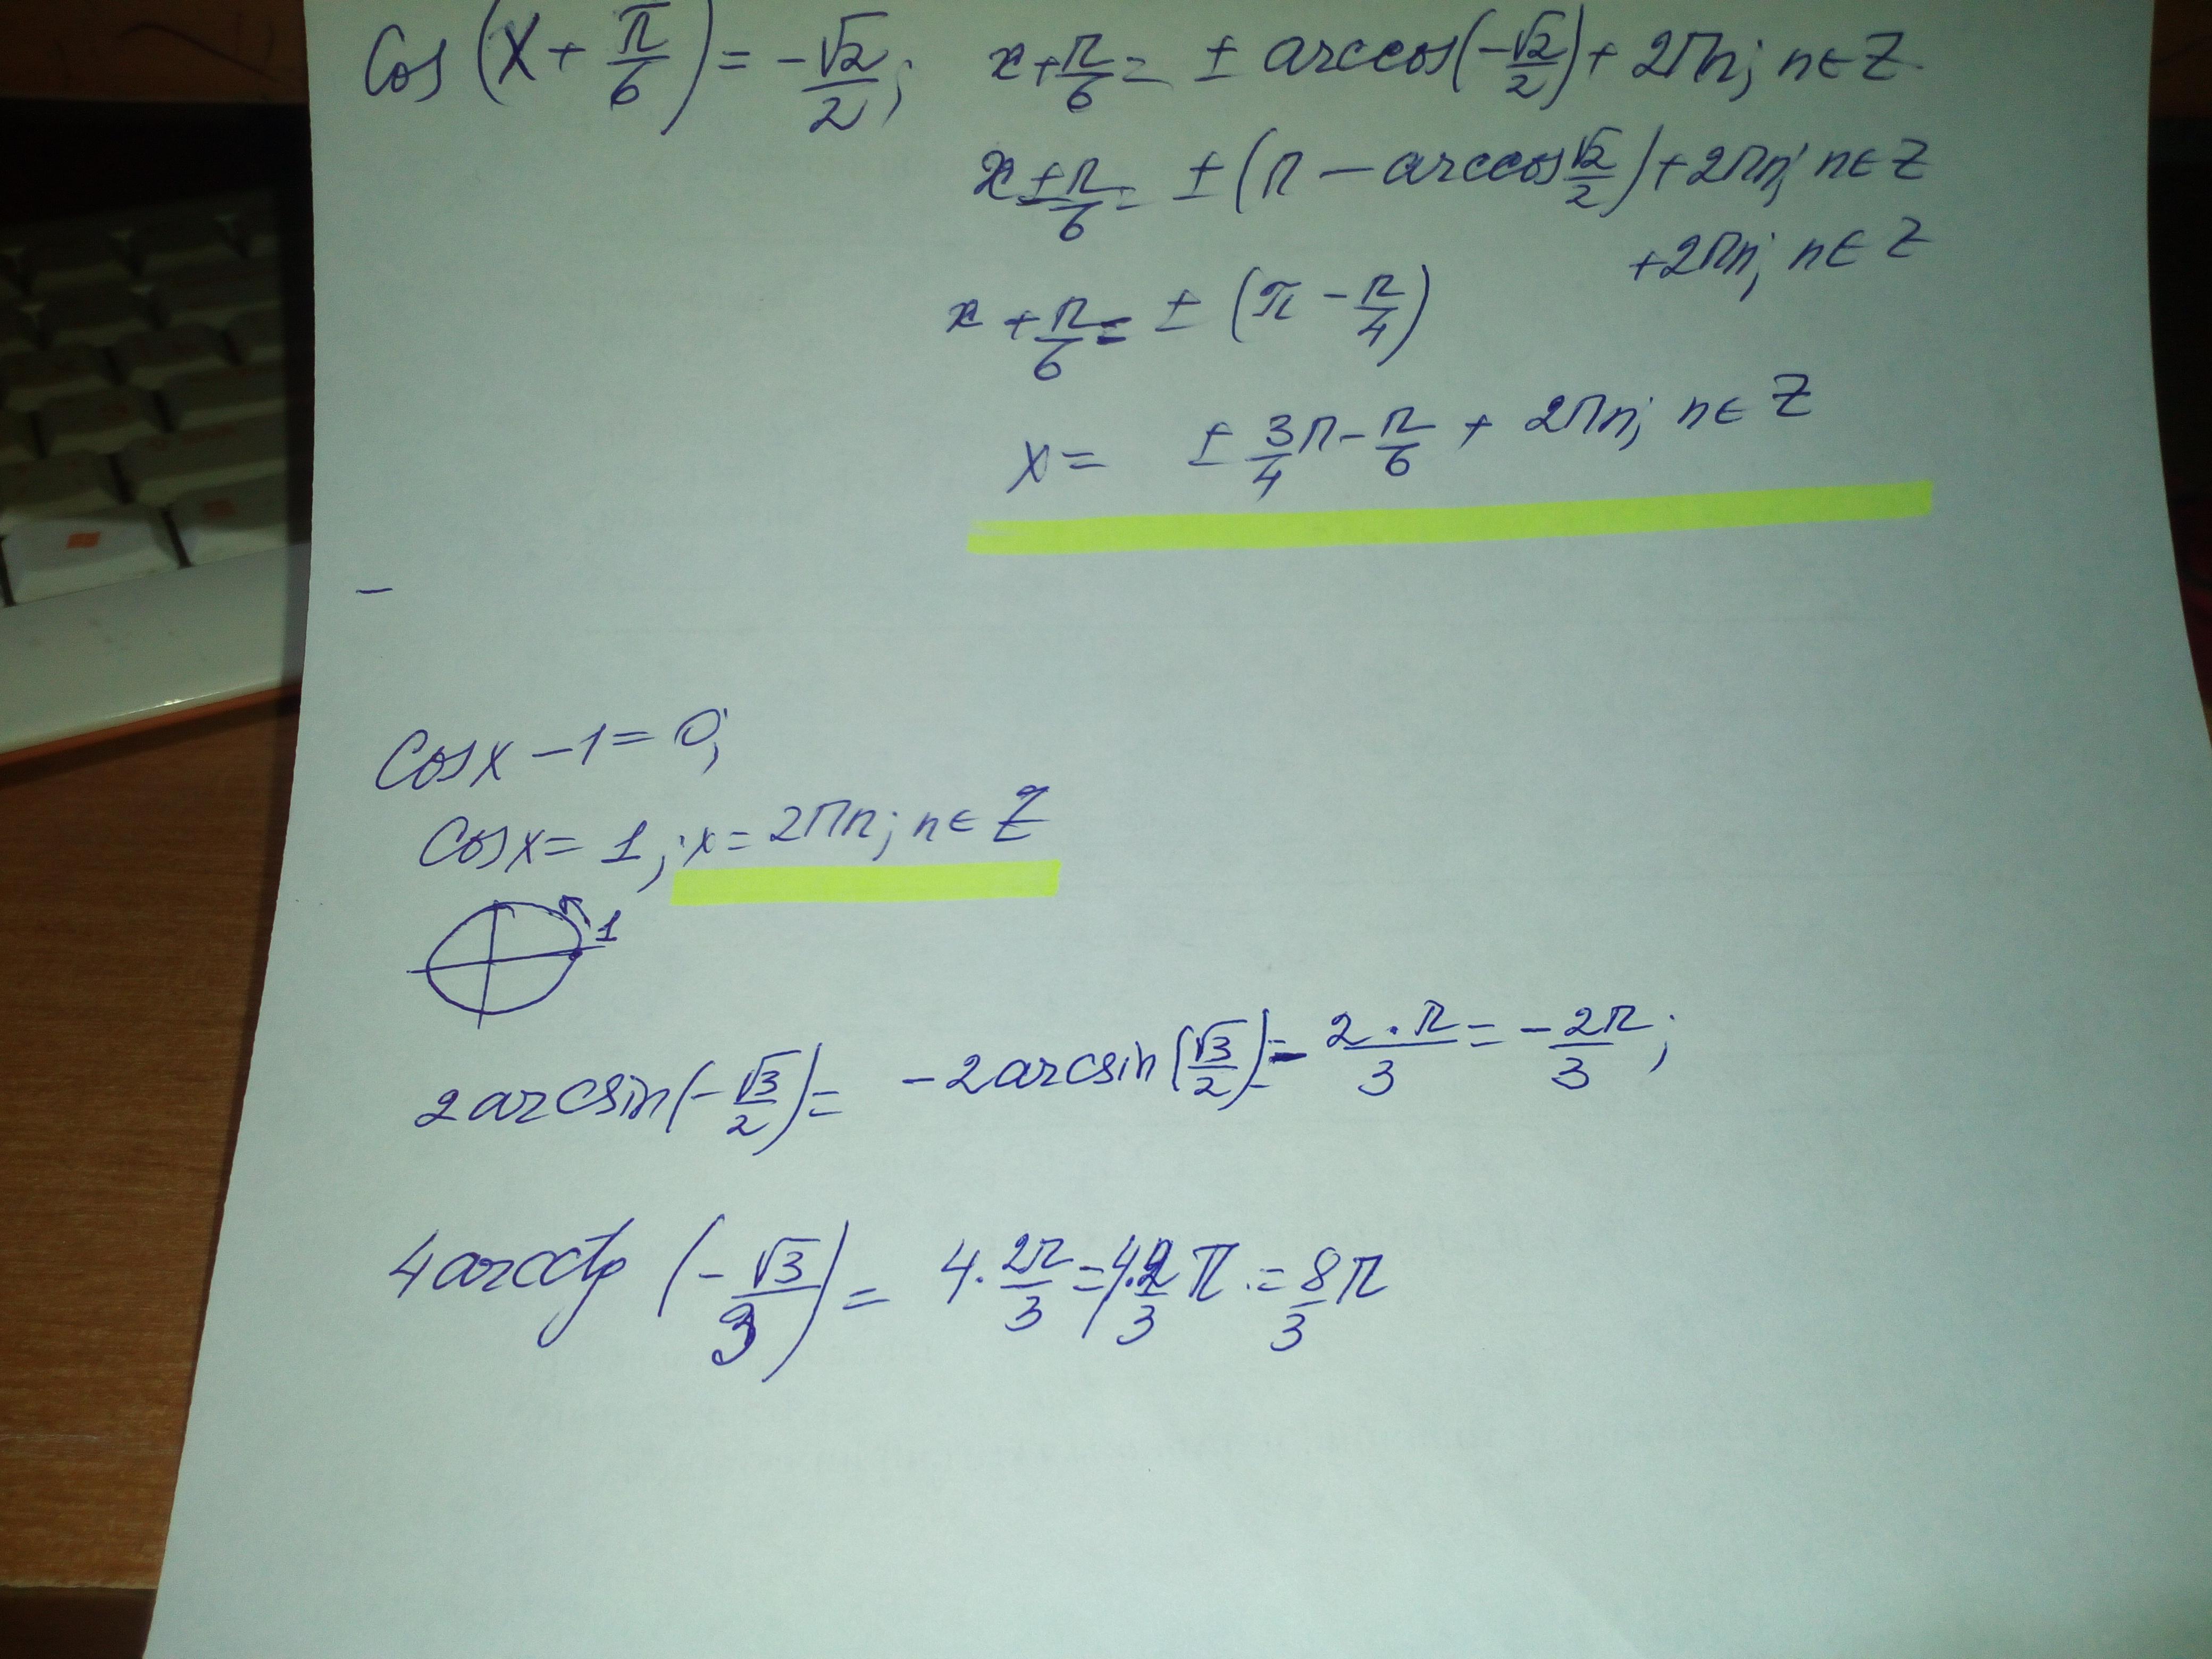 Cos(x + π/6) = -√2/2; x + π/6 = ± arccos(-√2/2) + 2πn; n ∈ Z
x + π/6 = ± (π - arccos √2/2) + 2πn; n ∈ Z
x + π/6 = ± (π - π/4) + 2πn; n ∈ Z
x = ± 3/4 π - π/6 + 2πn; n ∈ Z
-
Cosx - 1 = 0;
Cosx = 1; x = 2πn; n ∈ Z
1
2arcsin(-√3/2) = -2arcsin(√3/2) = - 2·π/3 = -2π/3;
4arcctg (-√3/3) = 4·2π/3 = 4·2/3 π = 8/3 π